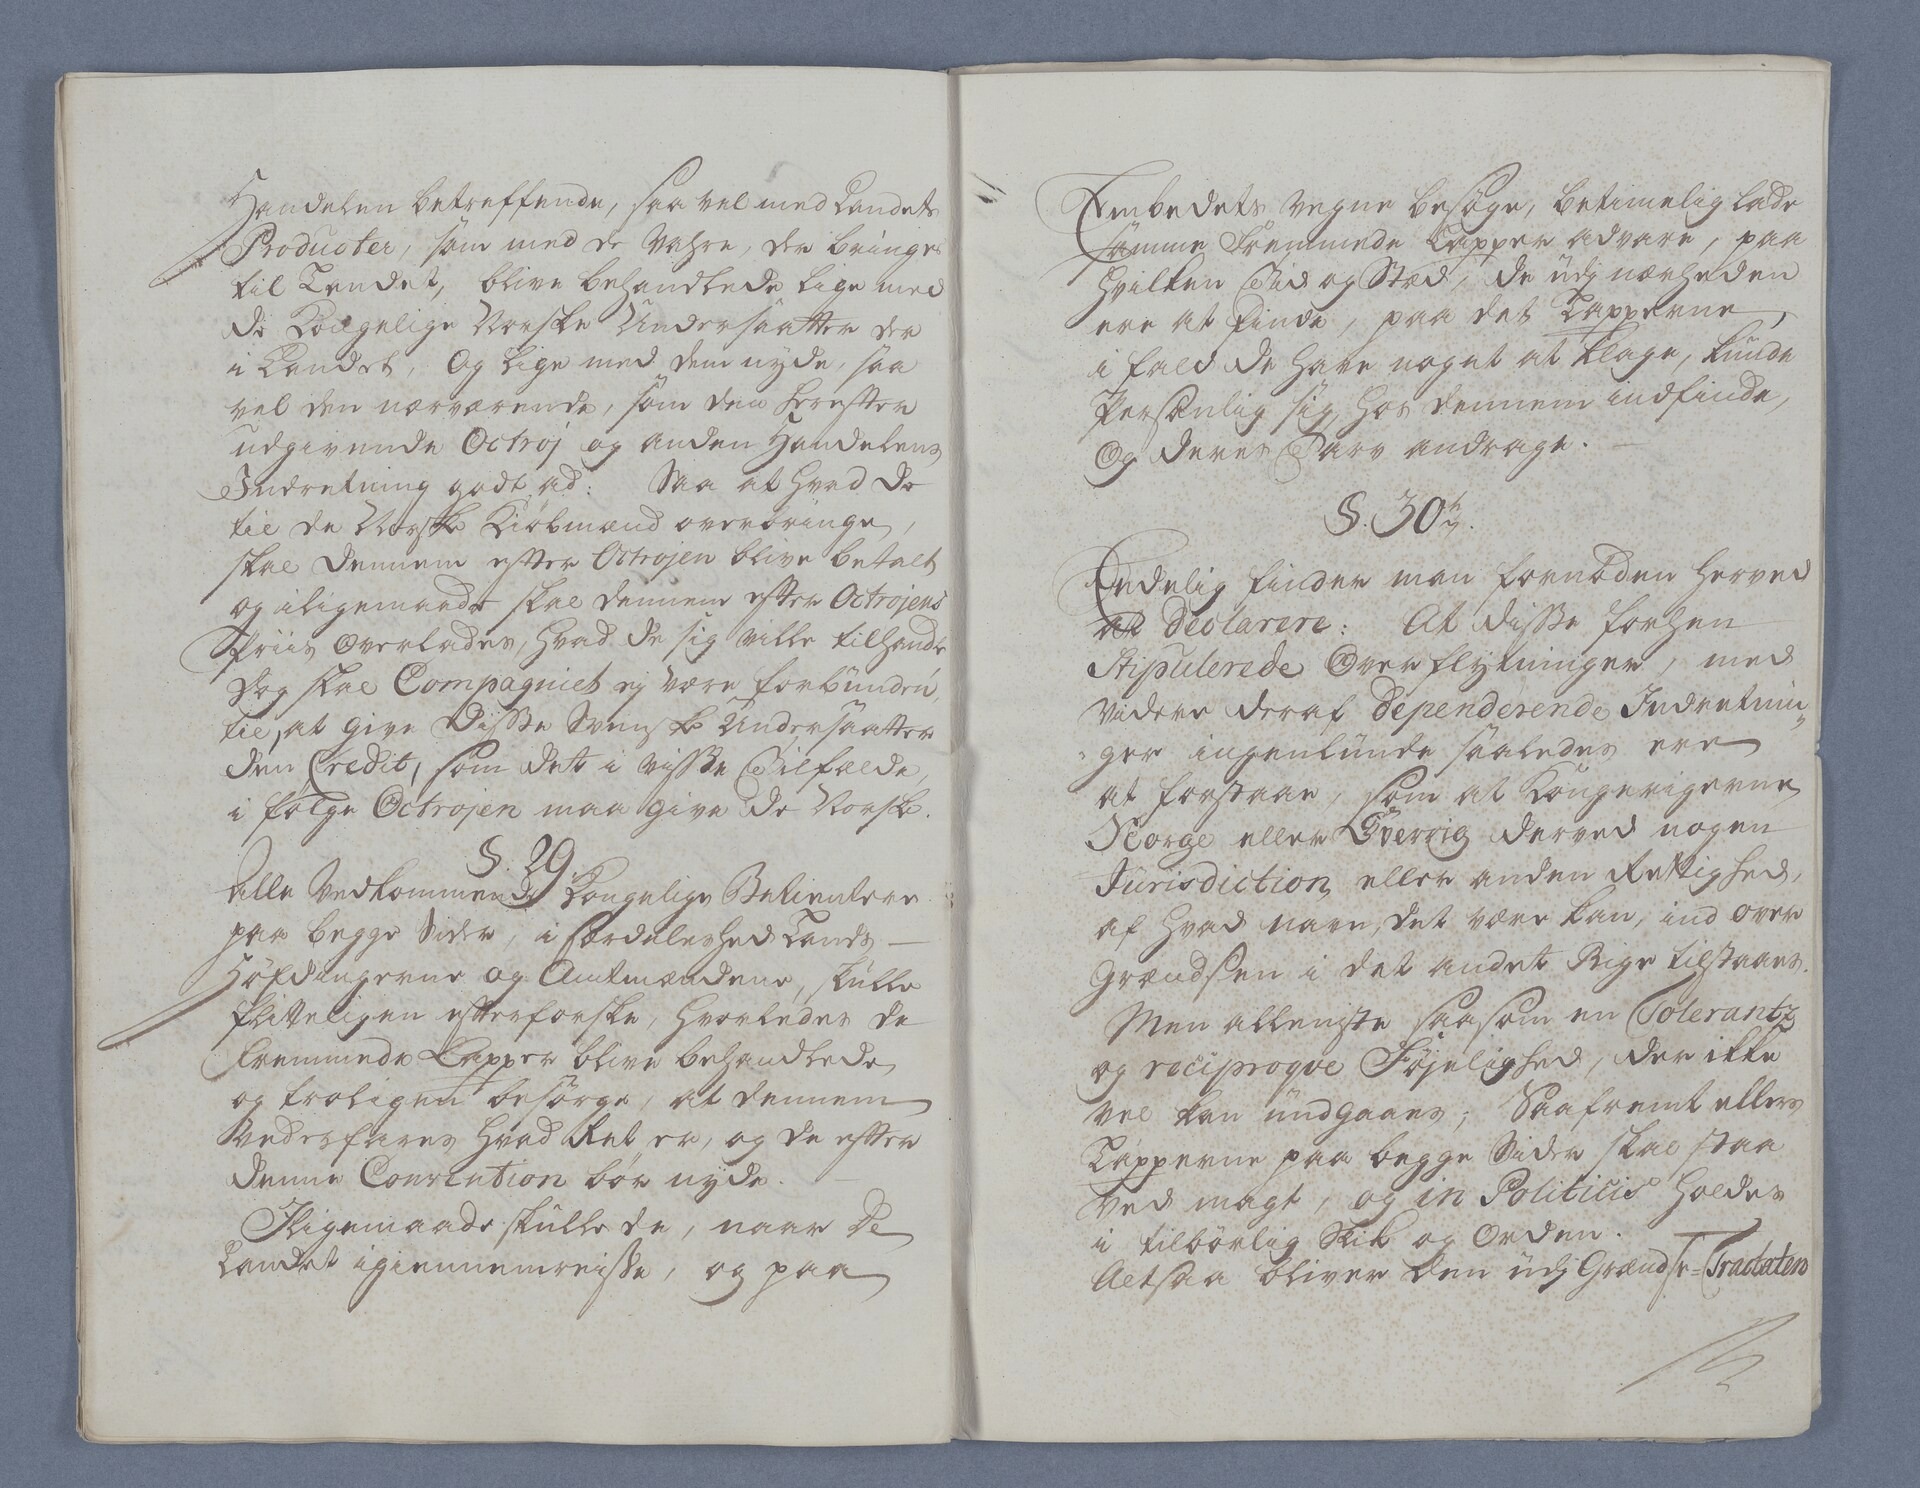 Handelen betreffende, saa vel med Landets
Producter, som med de Vahre, der bringes
til Landet, blive behandlede lige med
de Kongelige Norske Undersaatter der
i Landet, Og lige med dem nyde, saa
vel den nærværende, som den herefter
udgivende Octroj og anden Handelens
Indretning godt ad: Saa at hvad de
til de Norske Kiøbmænd overbringe,
skal dennem efter Octrojen blive betalt
og iligemaade skal dennem efter Octrojens
Priis overlades, hvad de sig ville tilhandle
dog skal Compagniet ej være forbunden
til, at give disse Svenske Undersaatter
den Credit, som det i visse Tilfælde,
i følge Octrojen maa give de Norske.
§. 29.
Alle Vedkommende Kongelige Betientere
paa begge Sider, i særdeleshed Lands-
Høfdingerne og Amtmændene, skulle
flitteligen efterforske, hvorledes de
fremmede Lapper blive behandlede
og troligen besørge, at dennem
vederfares hvad Ret er, og de efter
denne Convention bør nyde.
Iligemaade skulle de, naar de
Landet igiennemreisse, og paa
Embedets vegne besøge, betimelig lade
samme fremmede Lapper advare, paa
hvilken Tid og Stæd, de udj nærheden
ere at finde, paa det Lapperne,
i fald de have noget at klage, kunde
Personlig sig hos dennem indfinde,
Og deres Tarv andrage.
§. 30te.
Endelig finder man fornøden herved
at declarere: At disse forhen
Stipulerede Overflytninger, med
videre deraf dependerende Indretnin„
„ger ingenlunde saaledes ere
at forstaae, som at Kongerigerne
Norge eller Sverrig derved nogen
Jurisdiction, eller anden Rettighed,
af hvad navn det være kan, ind over
Grændsen i det andet Rige tilstaaes.
Men alleniste saasom en Tolerantz
og reciproqve Føjelighed, der ikke
vel kan undgaaes; Saafremt ellers
Lapperne paa begge Sider skal staa
ved magt, og in Politicis holdes
i tilbørlig Skik og Orden.
Altsaa bliver den udj Grændse-Tractaten